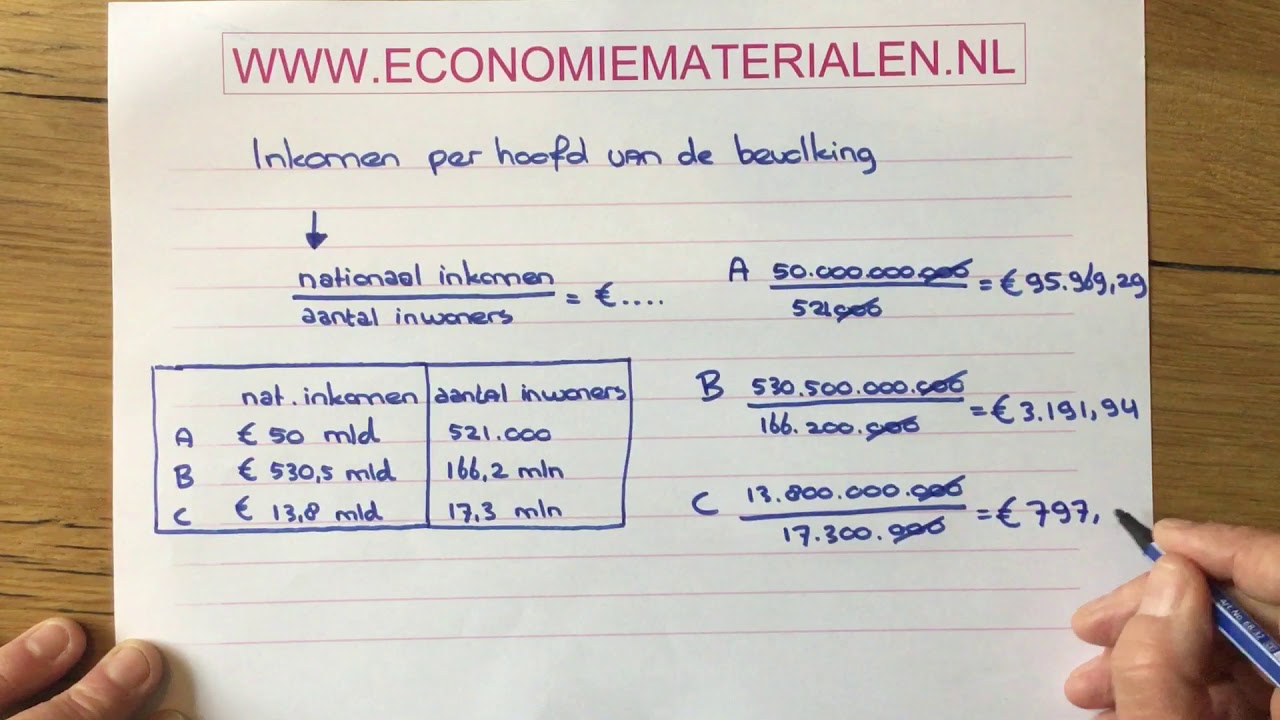 WWW.ECONOMIEMATERIALEN.NL
Inkomen per hoofd van de bevolking
nationaal inkomen
aantal inwoners
= €....
nat. inkomen aantal inwoners
A € 50 mld 521.000
B € 530,5 mld 166,2 mln
C € 13,8 mld 17,3 mln
A 50.000.000.000
521000
= € 95.969,29
B 530.500.000.000
166.200.000
= € 3.191,94
C 13.800.000.000
17.300.000
= € 797,